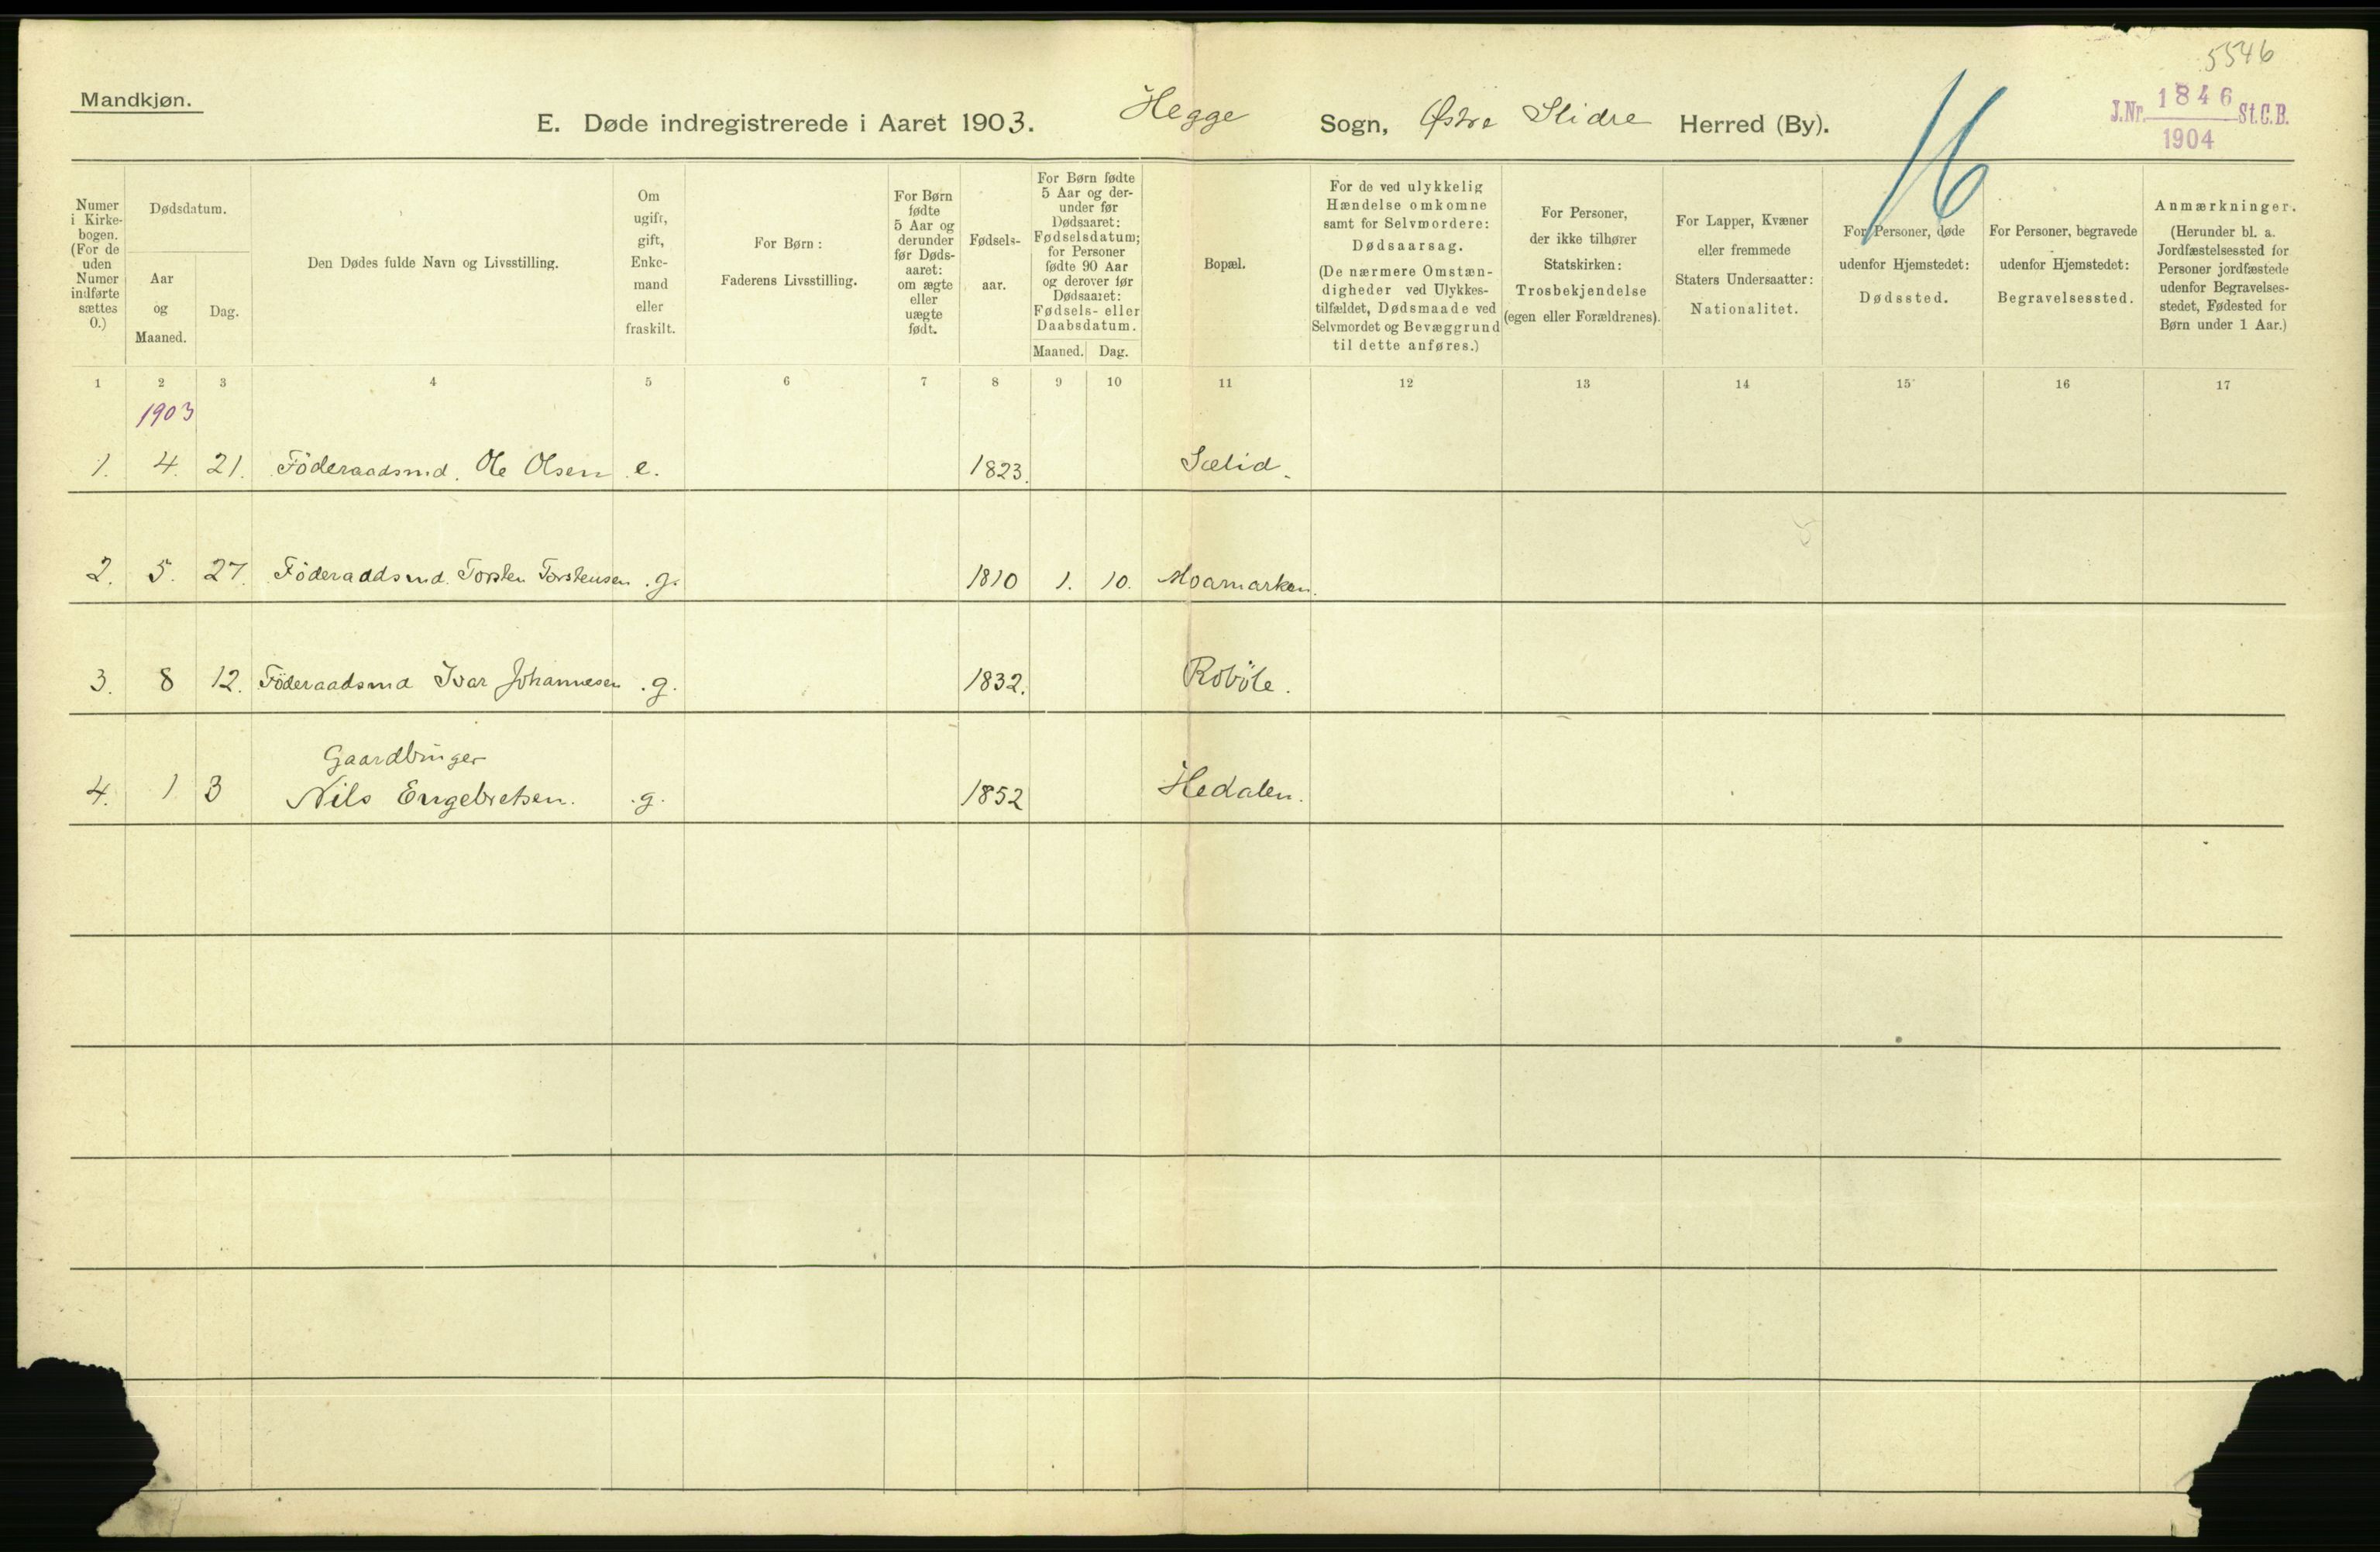 5546
Mandkjøn.
E. Døde indregistrerede i Aaret 1903. Hegge Sogn, Østre Slidre Herred (By).
J.Nr. 1846 St.C.B.
1904
16
Numer
i Kirke-
bogen.
(For de
uden
Numer
indførte
sættes
0.)
Dødsdatum.
Aar
og
Maaned.
Dag.
Den Dødes fulde Navn og Livsstilling.
Om
ugift,
gift,
Enke-
mand
eller
fraskilt.
For Børn:
Faderens Livsstilling.
For Børn
fødte
5 Aar og
derunder
før Døds-
aaret:
om ægte
eller
uægte
født.
Fødsels-
aar.
For Børn fødte
5 Aar og der-
under før
Dødsaaret:
Fødselsdatum;
for Personer
fødte 90 Aar
og derover før
Dødsaaret:
Fødsels- eller
Daabsdatum.
Maaned. Dag.
Bopæl.
For de ved ulykkelig
Hændelse omkomne
samt for Selvmordere:
Dødsaarsag.
(De nærmere Omstæn-
digheder ved Ulykkes-
tilfældet, Dødsmaade ved
Selvmordet og Bevæggrund
til dette anføres.)
For Personer,
der ikke tilhører
Statskirken:
Trosbekjendelse
(egen eller Forældrenes).
For Lapper, Kvæner
eller fremmede
Staters Undersaatter:
Nationalitet.
For Personer, døde
udenfor Hjemstedet:
Dødssted.
For Personer, begravede
udenfor Hjemstedet:
Begravelsessted.
Anmærkninger.
(Herunder bl. a.
Jordfæstelsessted for
Personer jordfæstede
udenfor Begravelses-
stedet, Fødested for
Børn under 1 Aar.)
1 2 3 4 5 6 7 8 9 10 11 12 13 14 15 16 17
1903
1. 4. 21. Föderaadsmd. Ole Olsen e. 1823. Sælid.
2. 5. 27. Föderaadsmd. Torsten Torstensen .g. 1810 1. 10. Moamarken.
3. 8 12. Föderaadsmd Ivar Johannesen .g. 1832. Roböle.
Gaardbruger
4. 1 3 Nils Engebretsen. .g. 1852 Hedalen.